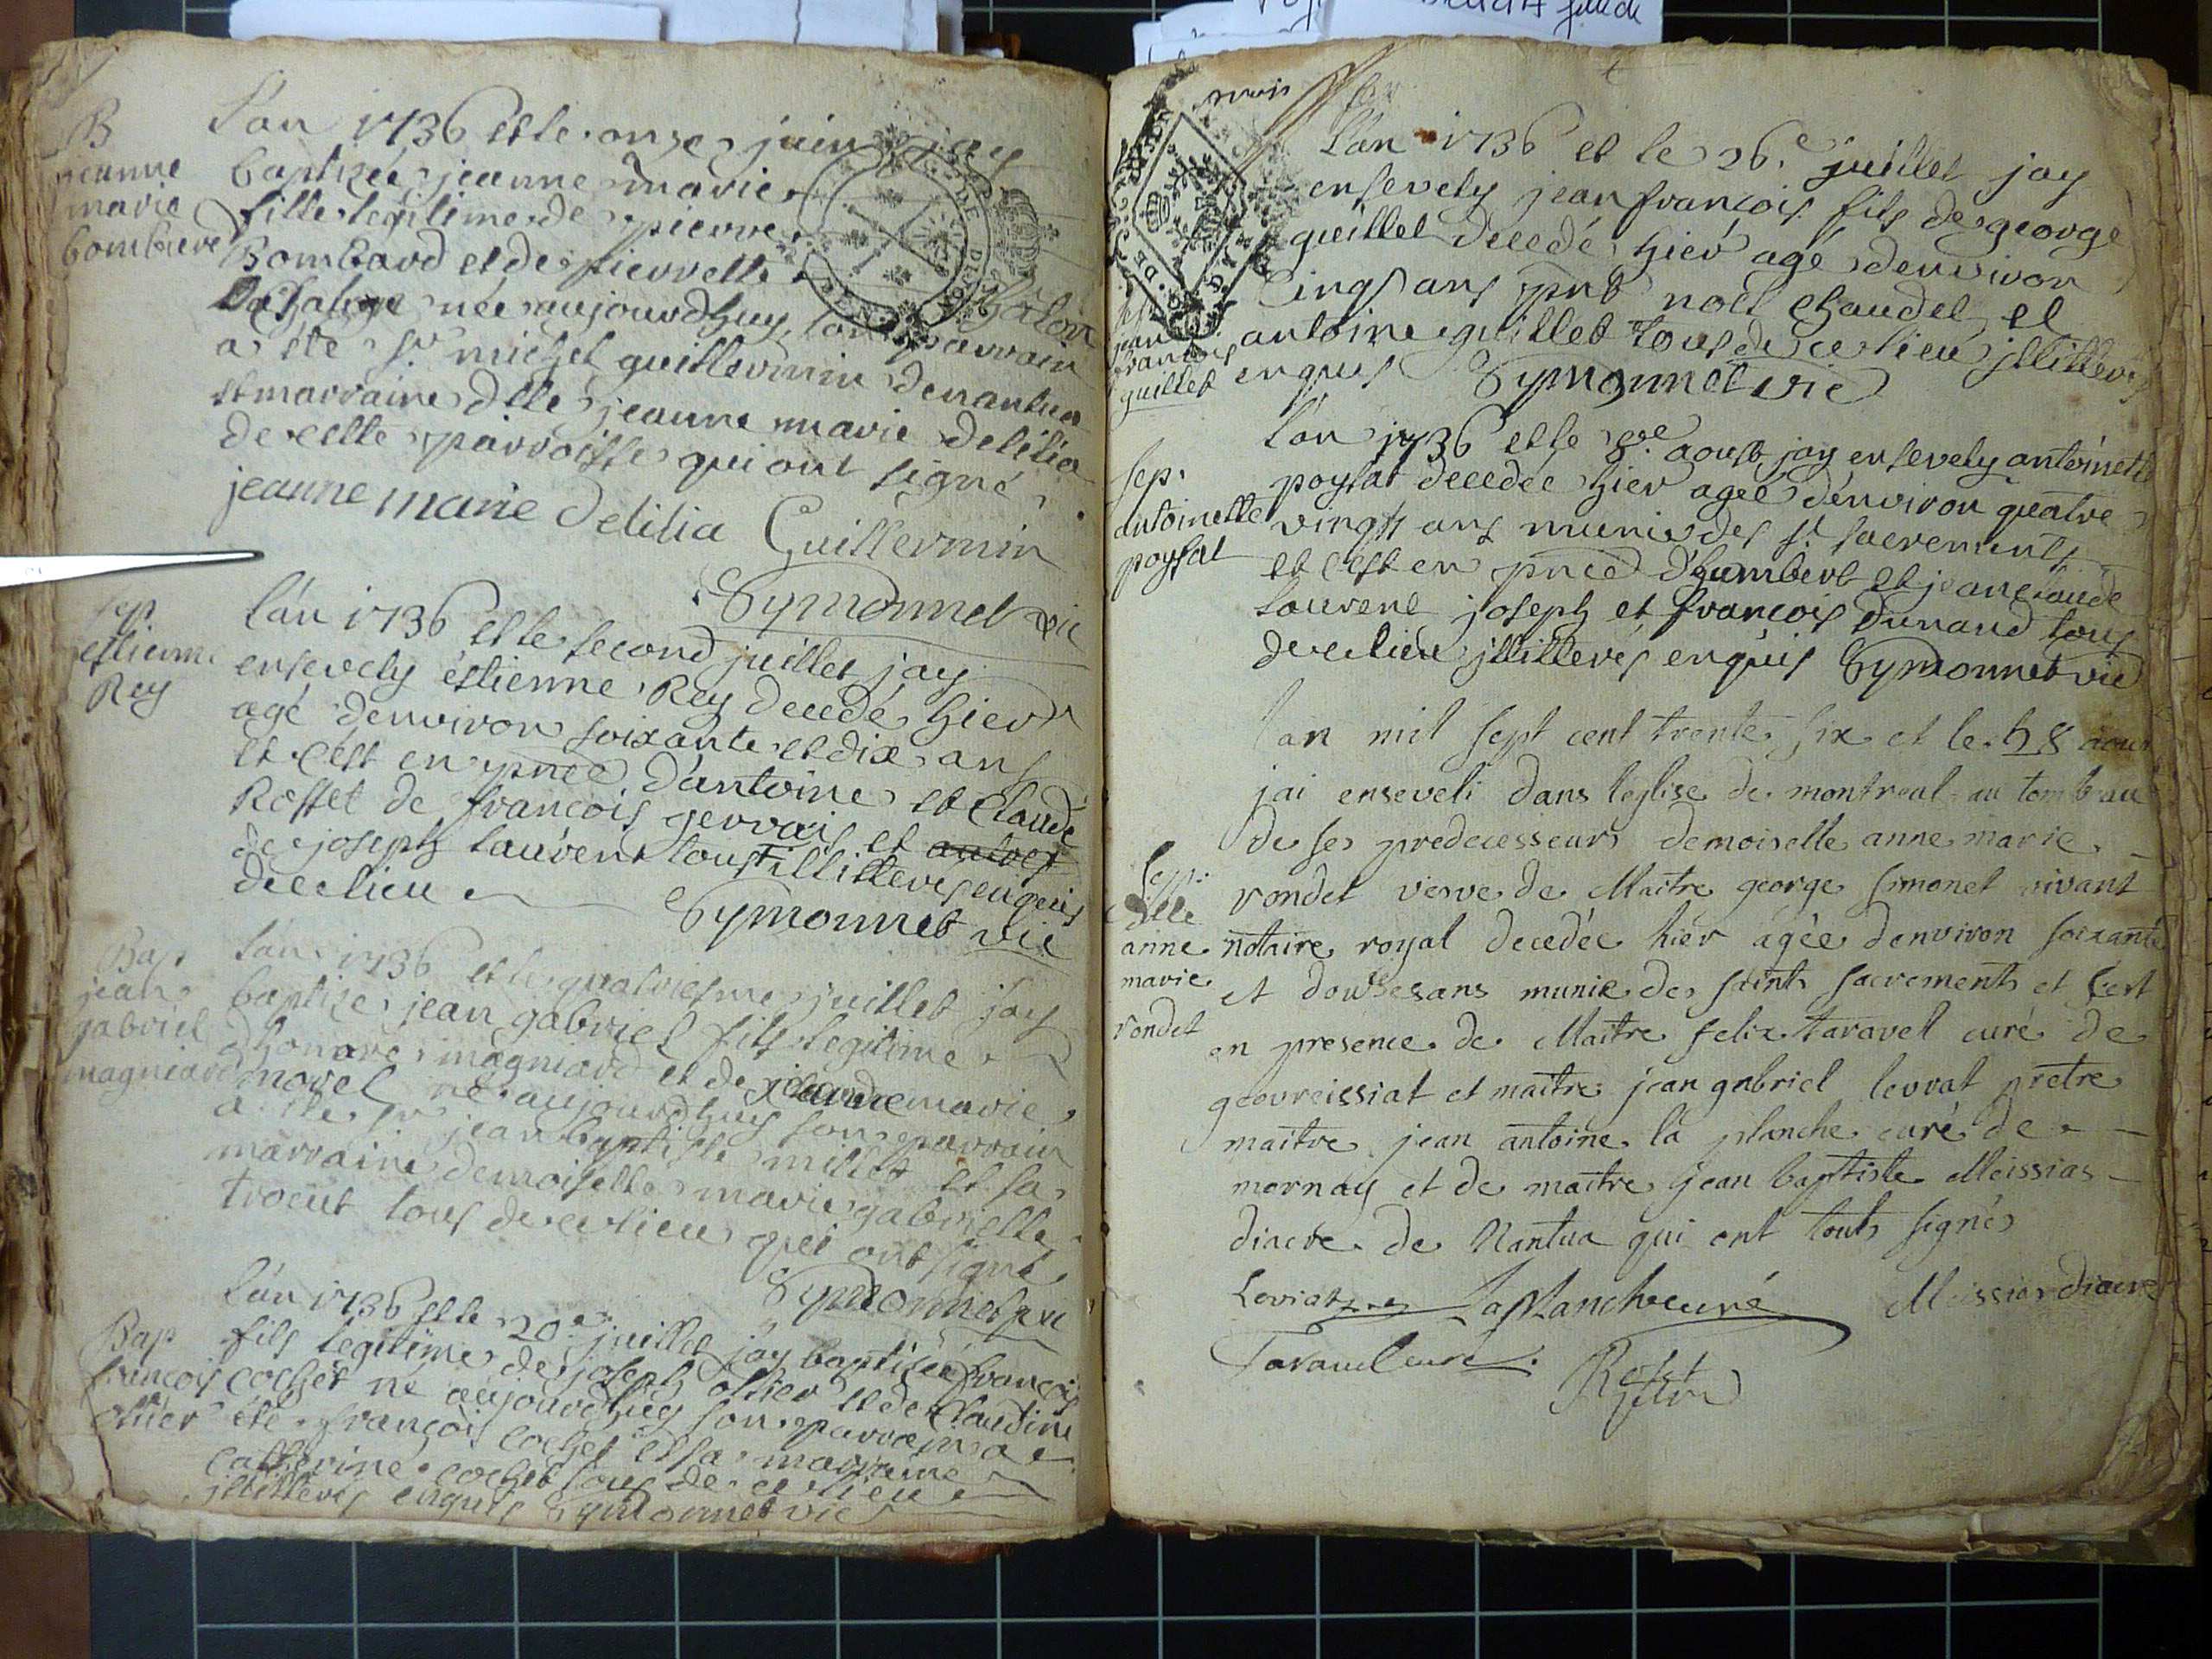 B
jeanne
marie
bombard
L'an 1736 et le onze juin jay
baptizée jeanne marie
fille legitime de pierre
Bombard et de pierrette
née aujourdhuy son parrain
a été sr michel guillermin denantua
et marraine dlle jeanne marie delilia
de cette parroisse qui ont signé
jeanne marie delilia Guillermin
Symonnet vic
sep
estienne
Rey
L'an 1736 et le second juillet jay
ensevely estienne Rey decedé hier
agé denviron soixante et dix ans
et c'est en pnce d'antoine et Claude
Rosset de françois gervais et autres
de joseph laurent tous illitterés enquis
de ce lieu
Symonnet vic
Bap
jean
gabriel
magniard
L'an 1736 et le quatriesme juillet jay
baptize jean gabriel fils legitime
dhonoré magniard et de claudemarie
morel né aujourdhuy son parrain
a été sr jean baptiste millet et sa
marraine demoiselle marie gabrielle
trocut tous de ce lieu qui ont signé
Symonnet vic
Bap
francois
ollier
L'an 1736 et le 20e juillet jay baptizé françois
fils legitime de joseph ollier et de Claudine
cochet né aujourdhuy son parrain a
été françois cochet et sa marraine
catherine cochet tous de ce lieu
illitterés enquis Symonnet vic
jean
francois
guillet
L'an 1736 et le 26e juillet jay
ensevely jean françois fils de george
guillet decedé hier agé denviron
cinq ans pnt noel chaudet et
antoine guillet tous de ce lieu illitterés
enquis Symonnet vic
sep.
antoinette
poysat
L'an 1736 et le 8e aoust jay ensevely antoinette
poysat decedée hier agée denviron quatre
vingt ans munie des st sacrements
et c'est en pnce d'humbert et jean claude
Laurent joseph et françois Dunand tous
de ce lieu illitterés enquis Symonnet vic
Sep:
dlle
anne
marie
rondet
Lan mil sept cent trente six et le 18 aoust
jai enseveli dans leglise de montreal au tombeau
de ses predecesseurs demoiselle anne marie
rondet veuve de Maitre george simonet vivant
notaire royal decedée hier agée denviron soixante
et douse ans munie des saints sacrements et c'est
en presence de Maitre felix taravel curé de
geovreissiat et maitre jean gabriel levrat prêtre
maitre jean antoine la planche curé de
mornay et de maitre jean baptiste Meissias
diacre de Nantua qui ont touts signés
Levrat Laplanche curé Meissias diacre
Taravel curé